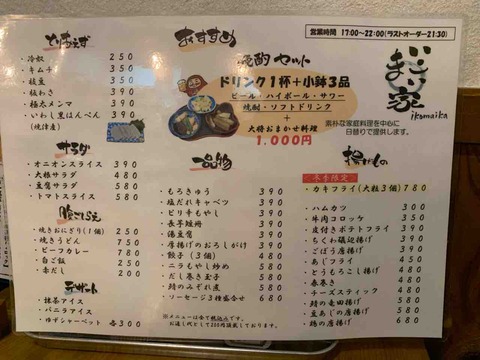 営業時間 17:00～22:00(ラストオーダー21:30)
とりあえず
・冷奴 250
・キムチ 250
・枝豆 350
・板わさ 390
・極太メンマ 390
・いわし黒はんぺん 390
(焼津産)
サラダ
・オニオンスライス 390
・大根サラダ 480
・豆腐サラダ 580
・トマトスライス 580
腹ごしらえ
・焼きおにぎり(1個) 250
・焼きうどん 750
・ビーフカレー 780
・白ご飯 250
・赤だし 200
デザート
・抹茶アイス
・バニラアイス
・ゆずシャーベット 各300
おすすめ
晩酌セット
ドリンク1杯+小鉢3品
ビール・ハイボール・サワー
焼酎・ソフトドリンク
+
大将おまかせ料理
1.000円
一品物
・もろきゅう 390
・塩だれキャベツ 390
・ピリ辛もやし 390
・長芋短冊 390
・湯豆腐 390
・唐揚げのおろしがけ 390
・餃子(3個) 480
・ニラもやし炒め 580
・だし巻き玉子 580
・鯖のみぞれ煮 580
・ソーセージ3種盛合せ 680
※メニューは全て税込みです。
お通し代として200円頂戴しております。
いこまい家
ikomaika
素朴な家庭料理を中心に
日替りで提供します。
揚げもの
冬季限定
・カキフライ(大粒3個) 780
・ハムカツ 300
・牛肉コロッケ 350
・皮付きポテトフライ 390
・ちくわ磯辺揚げ 390
・ごぼう唐揚げ 390
・あじフライ 480
・とうもろこし揚げ 480
・春巻き 480
・チーズスティック 480
・鯖の竜田揚げ 580
・豆あじの唐揚げ 580
・鶏の唐揚げ 680